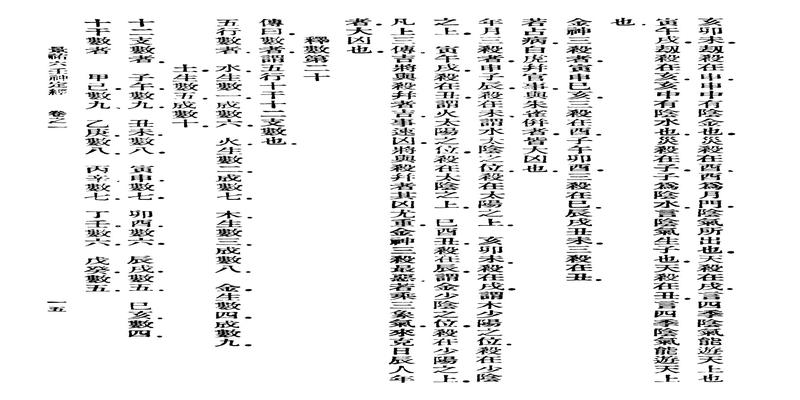 亥卯未劫殺在申申中有陰金也災殺在酉酉爲月門陰氣所出也天殺在戌言四季陰氣能遊天上也
寅午戌劫殺在亥亥中有陰水也災殺在子子爲陰水言陰氣生子也天殺在丑言四季陰氣能遊天上
也
金神三殺者寅申巳亥三殺在酉子午卯酉三殺在巳辰戌丑未三殺在丑
若占病白虎幷官事與朱雀倂者皆大凶也
年月三殺者申子辰殺在未謂水太陰之位殺在太陽之上亥卯未殺在戌謂木少陽之位殺在少陰
之上寅午戌殺在丑謂火太陽之位殺在太陰之上巳酉丑殺在辰謂金少陰之位殺在少陽之上
凡上三傳吉將與殺幷者吉事速凶將與殺幷者其凶尤重金神三殺最惡若乘三象氣來克日辰人年
者大凶也
釋數第二十
傳曰數者謂五行十干十二支數也
五行數者水生數一成數六火生數二成數七木生數三成數八金生數四成數九
土生數五成數十
十二支數者子午數九丑未數八寅申數七卯酉數六辰戌數五巳亥數四
十干數者甲己數九乙庚數八丙辛數七丁壬數六戊癸數五
景祐六壬神定經 卷之一 一五